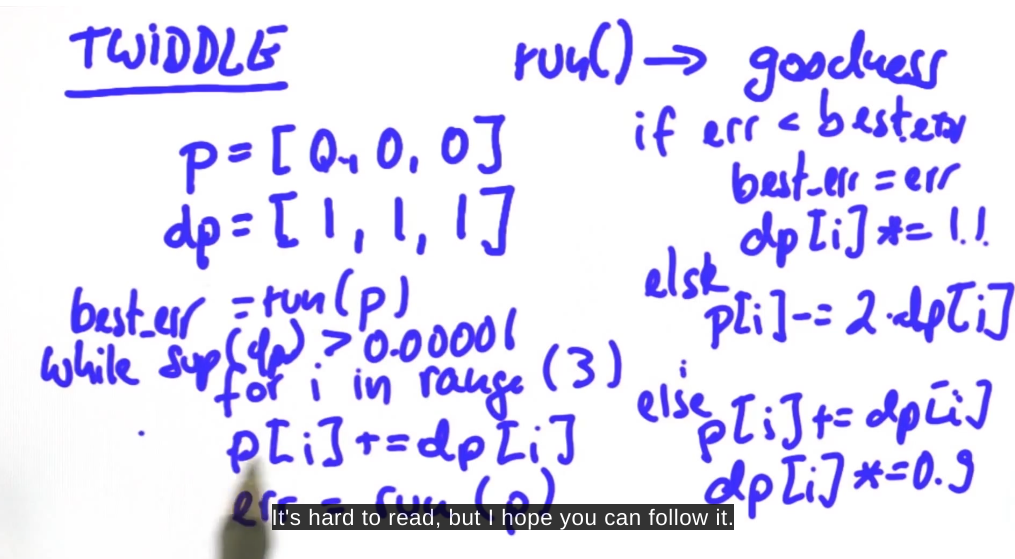 TWIDDLE
p = [0, 0, 0]
dp = [1, 1, 1]
best_err = run(p)
while sup(dp) > 0.00001
for i in range (3)
p[i] += dp[i]
err = run(p)
run() → goodness
if err < best_err
best_err = err
dp[i] *= 1.1
else
p[i] -= 2·dp[i]
else
p[i] += dp[i]
dp[i] *= 0.9
It's hard to read, but I hope you can follow it.